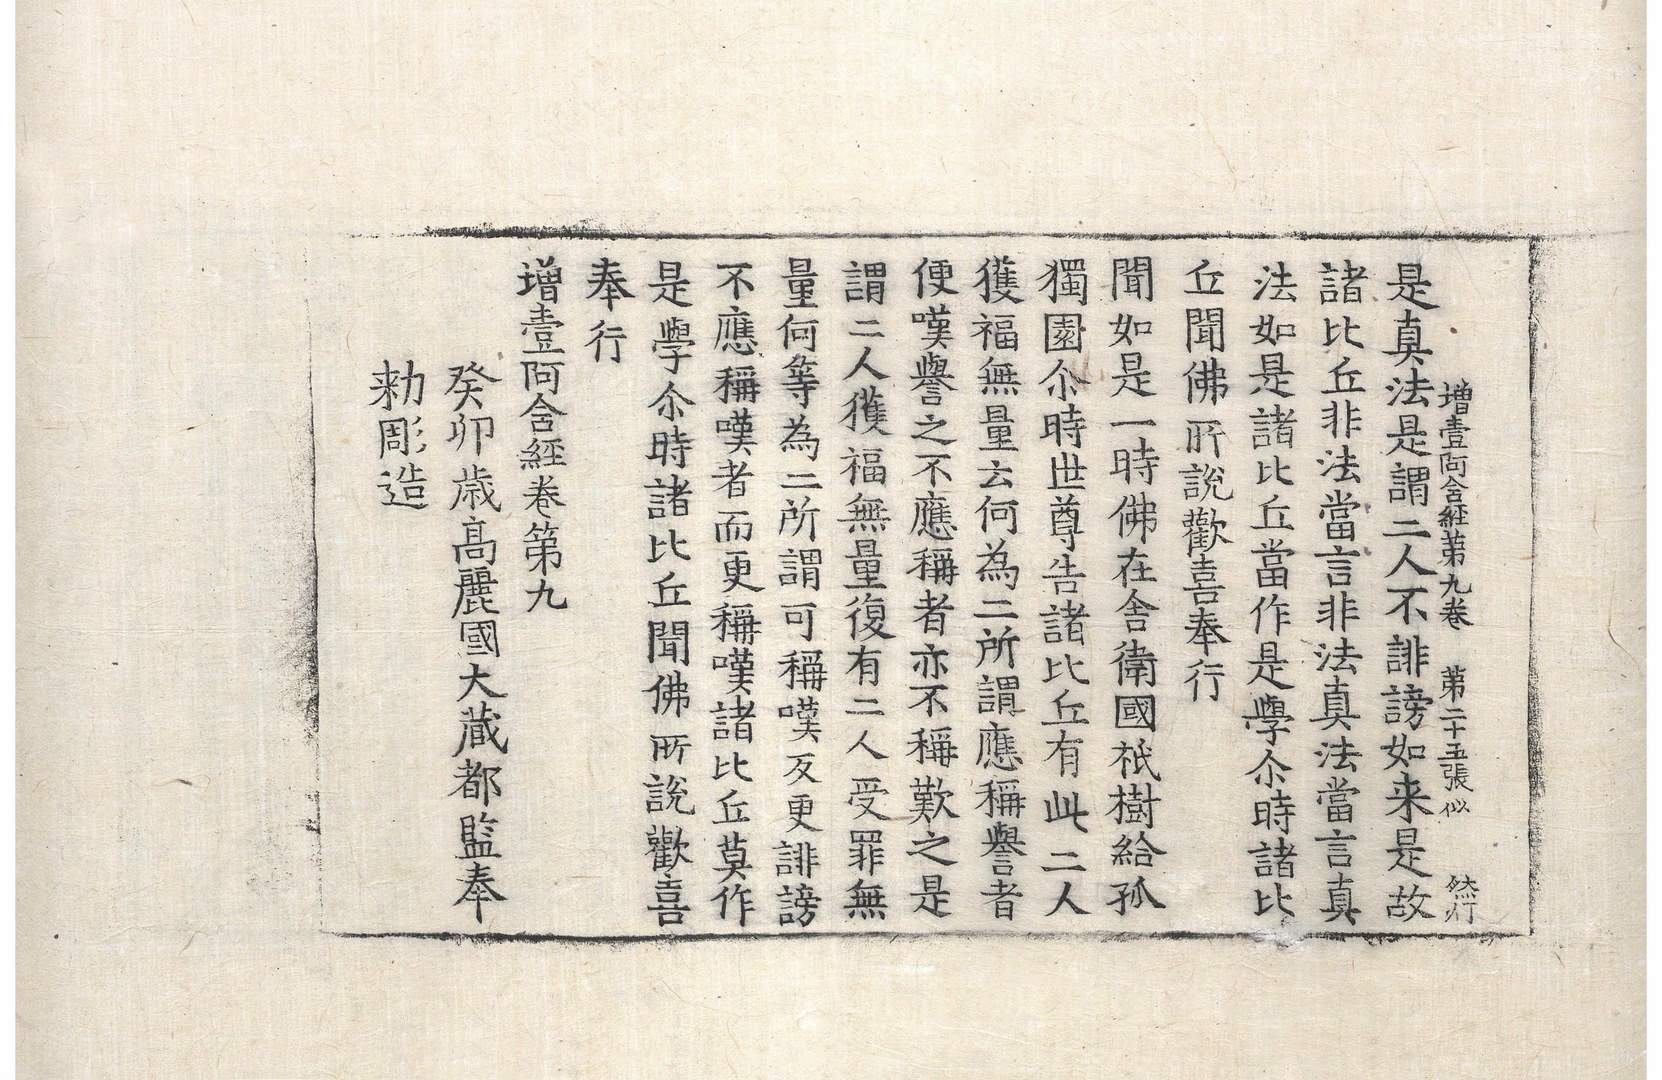 增壹阿含經第九卷 第二十五張 似 然行
是真法是謂二人不誹謗如来是故
諸比丘非法當言非法真法當言真
法如是諸比丘當作是學尒時諸比
丘聞佛所說歡喜奉行
聞如是一時佛在舍衛國祇樹給孤
獨園尒時世尊告諸比丘有此二人
獲福無量云何為二所謂應稱譽者
便嘆譽之不應稱者亦不稱歎之是
謂二人獲福無量復有二人受罪無
量何等為二所謂可稱嘆反更誹謗
不應稱嘆者而更稱嘆諸比丘莫作
是學尒時諸比丘聞佛所說歡喜
奉行
增壹阿含經卷第九
癸卯歳高麗國大蔵都監奉
勑彫造